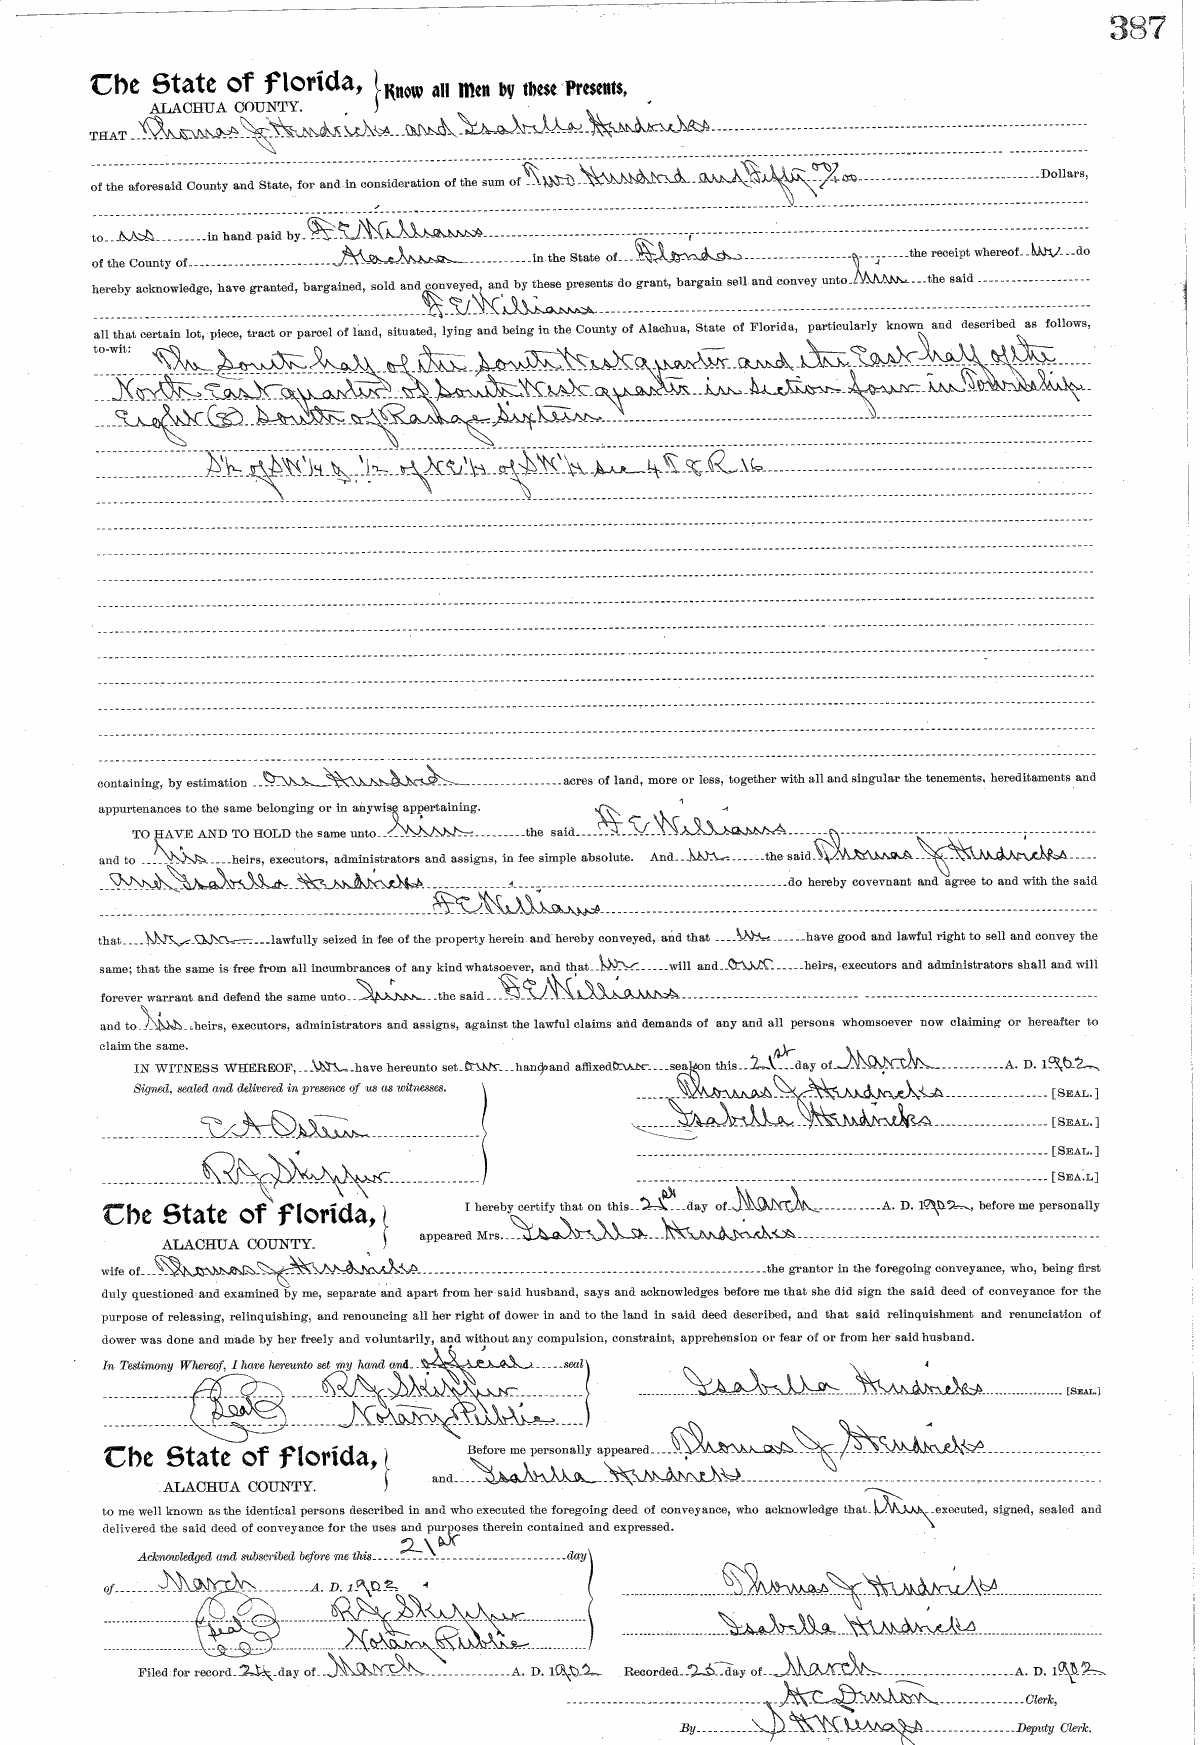 387
The State of Florida, Know all Men by these Presents,
ALACHUA COUNTY.
THAT Thomas J Hendricks and Isabella Hendricks
of the aforesaid County and State, for and in consideration of the sum of Two Hundred and Fifty 00/100 Dollars,
to us in hand paid by E Williams
of the County of Alachua in the State of Florida the receipt whereof we do
hereby acknowledge, have granted, bargained, sold and conveyed, and by these presents do grant, bargain sell and convey unto him the said
E Williams
all that certain lot, piece, tract or parcel of land, situated, lying and being in the County of Alachua, State of Florida, particularly known and described as follows,
to-wit: The South half of the South West quarter and the East half of the
North East quarter of South West quarter in Section four in Township
Eight (8) South of Range Sixteen
S½ of SW¼ & ½ of NE¼ of SW¼ sec 4 T 8 R 16
containing, by estimation One Hundred acres of land, more or less, together with all and singular the tenements, hereditaments and
appurtenances to the same belonging or in anywise appertaining.
TO HAVE AND TO HOLD the same unto him the said E Williams
and to his heirs, executors, administrators and assigns, in fee simple absolute. And we the said Thomas J Hendricks
and Isabella Hendricks do hereby covevnant and agree to and with the said
E Williams
that we are lawfully seized in fee of the property herein and hereby conveyed, and that we have good and lawful right to sell and convey the
same; that the same is free from all incumbrances of any kind whatsoever, and that we will and our heirs, executors and administrators shall and will
forever warrant and defend the same unto him the said E Williams
and to his heirs, executors, administrators and assigns, against the lawful claims and demands of any and all persons whomsoever now claiming or hereafter to
claim the same.
IN WITNESS WHEREOF, we have hereunto set our hands and affixed our seals on this 21st day of March A. D. 1902
Signed, sealed and delivered in presence of us as witnesses. Thomas J Hendricks [SEAL.]
E A Osteen Isabella Hendricks [SEAL.]
[SEAL.]
R J Skipper [SEA.L]
The State of Florida, I hereby certify that on this 21st day of March A. D. 1902, before me personally
ALACHUA COUNTY. appeared Mrs. Isabella Hendricks
wife of Thomas J Hendricks the grantor in the foregoing conveyance, who, being first
duly questioned and examined by me, separate and apart from her said husband, says and acknowledges before me that she did sign the said deed of conveyance for the
purpose of releasing, relinquishing, and renouncing all her right of dower in and to the land in said deed described, and that said relinquishment and renunciation of
dower was done and made by her freely and voluntarily, and without any compulsion, constraint, apprehension or fear of or from her said husband.
In Testimony Whereof, I have hereunto set my hand and official seal
R J Skipper Isabella Hendricks [SEAL.]
Seal Notary Public
The State of Florida, Before me personally appeared Thomas J Hendricks
ALACHUA COUNTY. and Isabella Hendricks
to me well known as the identical persons described in and who executed the foregoing deed of conveyance, who acknowledge that they executed, signed, sealed and
delivered the said deed of conveyance for the uses and purposes therein contained and expressed.
Acknowledged and subscribed before me this 21st day
of March A. D. 1902 Thomas J Hendricks
R J Skipper
Seal Isabella Hendricks
Notary Public
Filed for record 24 day of March A. D. 1902 Recorded 25 day of March A. D. 1902
H C Denton Clerk,
By S H Wienges Deputy Clerk.